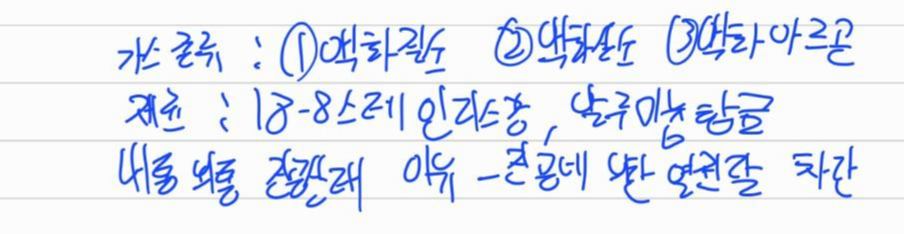 가스 종류 : ①액화질소 ②액화산소 ③액화아르곤
재료 : 18-8스테인리스강, 알루미늄합금
내통 외통 진공상태 이유 - 진공에 의한 열전달 차단